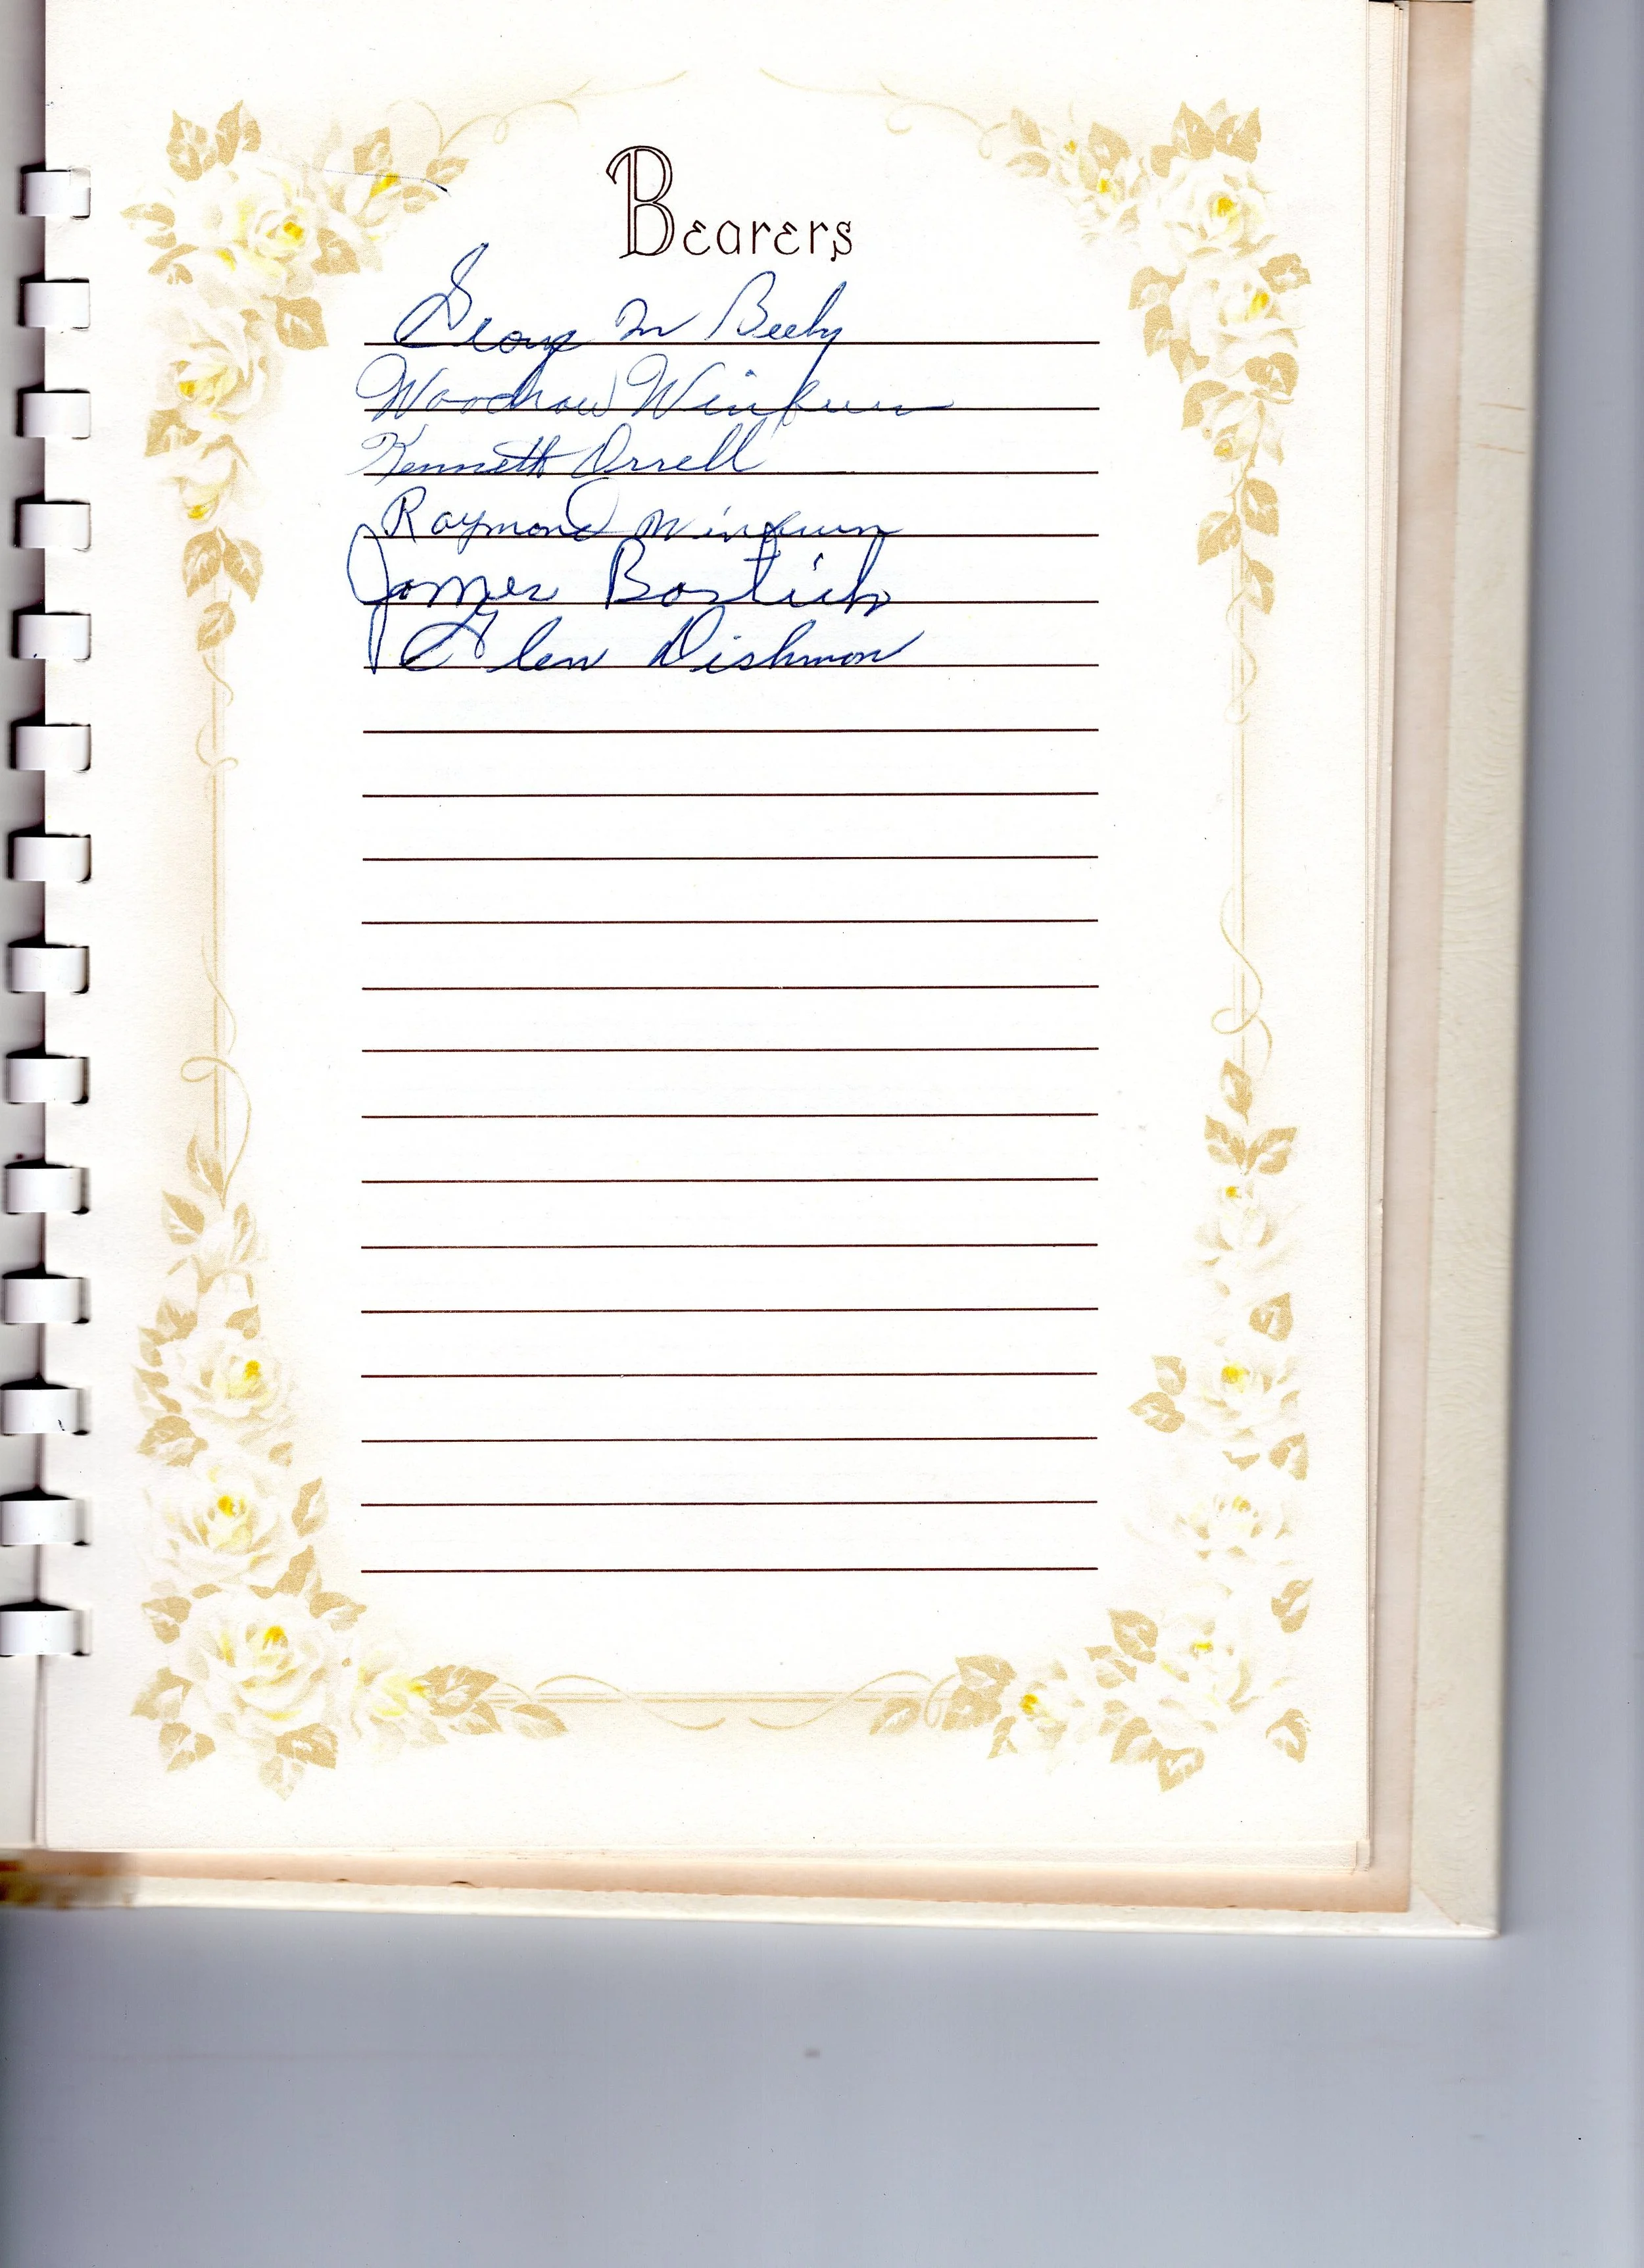 Bearers
George M Beeby
Woodrow Winburn
Kenneth Orrell
Raymond Winburn
James Bostick
Glen Dishmon